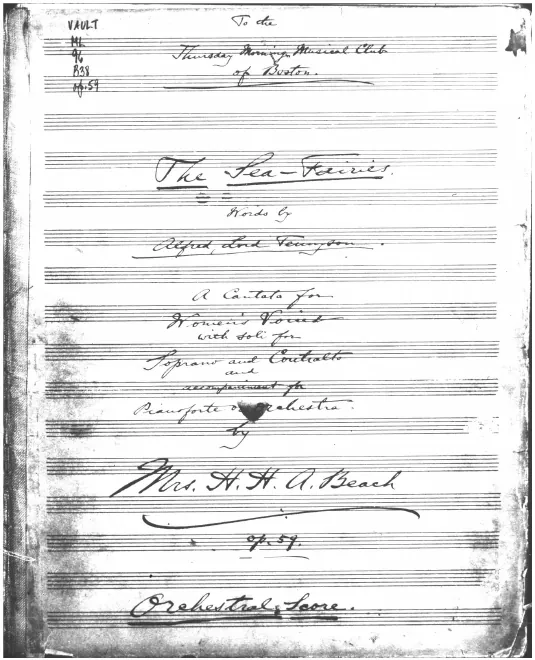 VAULT
ML
96
B38
op.59
To the
Thursday Morning Musical Club
of Boston.
The Sea-Fairies.
Words by
Alfred, Lord Tennyson.
A Cantata for
Women's Voices
with soli for
Soprano and Contralto
and
accompaniment for
Pianoforte or Orchestra.
by
Mrs. H. H. A. Beach
op. 59.
Orchestral Score.